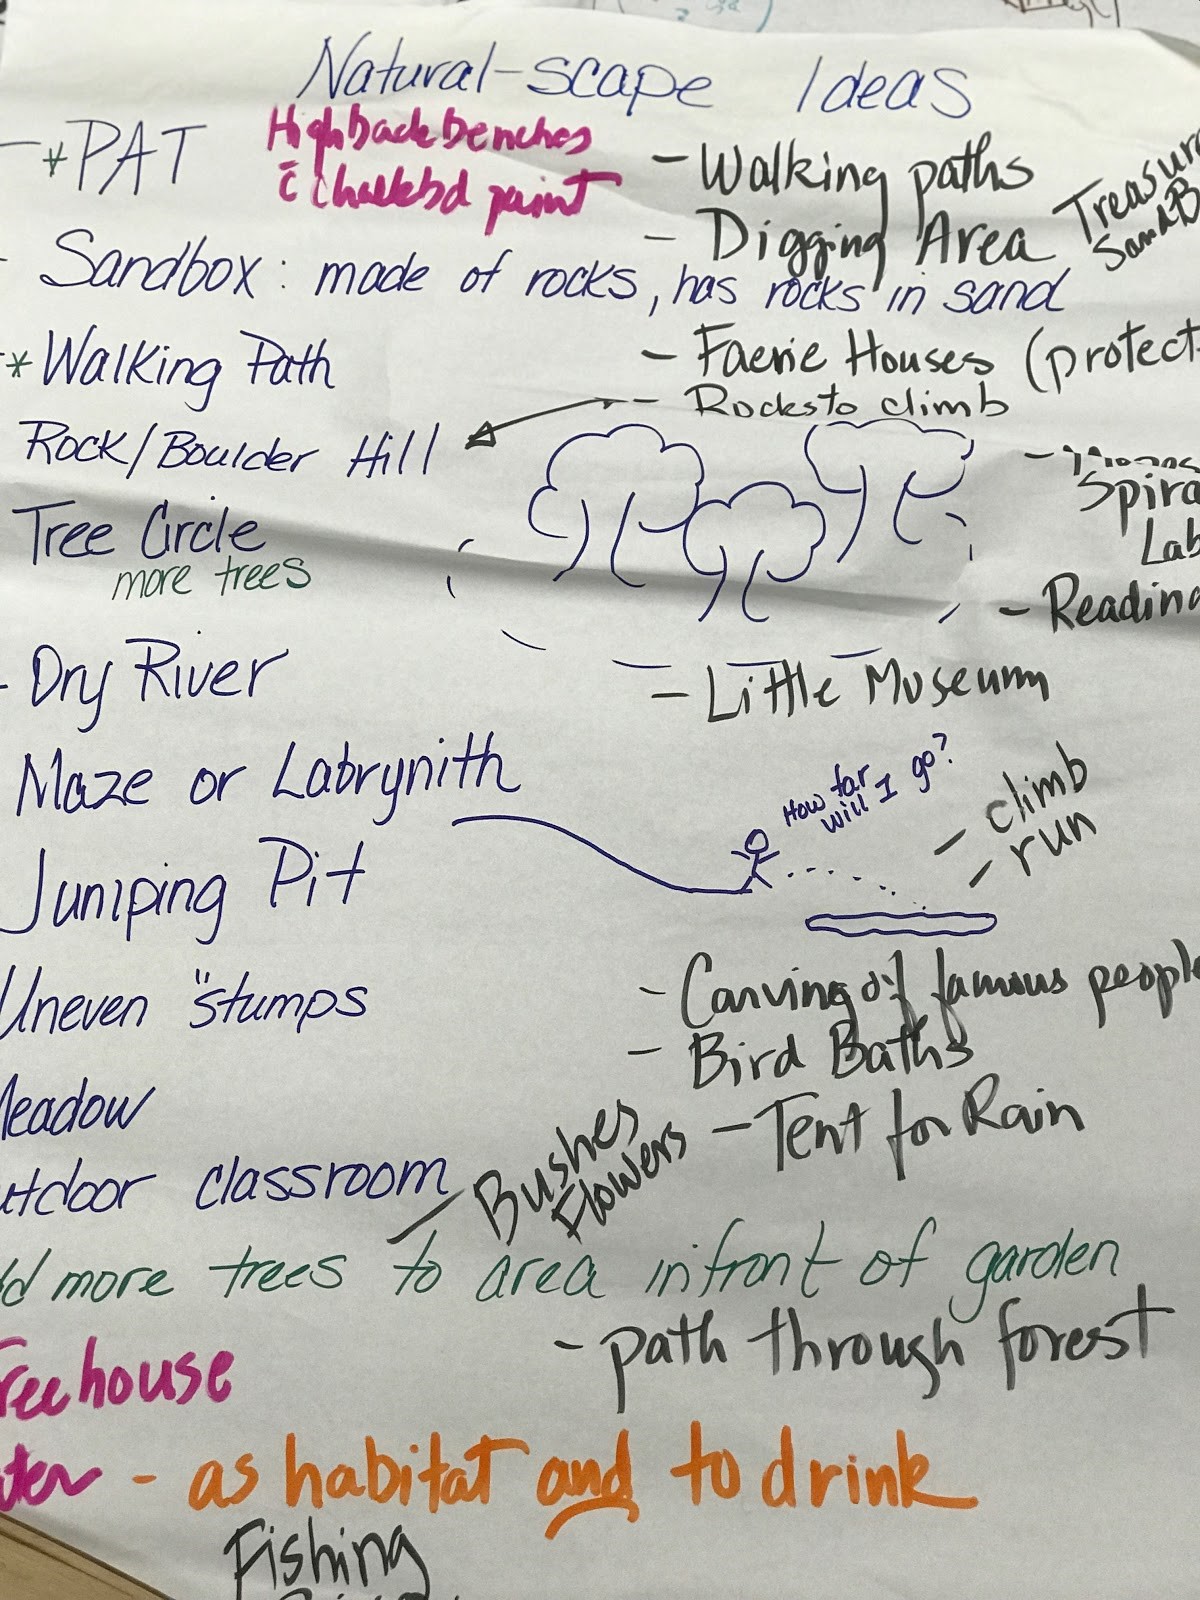 Natural-scape Ideas
- *PAT
Highback benches
c̄ chalkbd paint
- Walking paths
- Digging Area
- Sandbox: made of rocks, has rocks in sand
* Walking Path
- Faerie Houses (protect
- Rocks to climb
Rock/Boulder Hill
Tree Circle
more trees
- Reading
- Dry River
- Little Museum
Maze or Labrynith
How far
will I go?
- climb
- run
Jumping Pit
- Carving of famous people
Uneven "stumps
- Bird Baths
Meadow
- Tent for Rain
outdoor classroom
- Bushes
Flowers
more trees to area infront of garden
- path through forest
Treehouse
- as habitat and to drink
Fishing